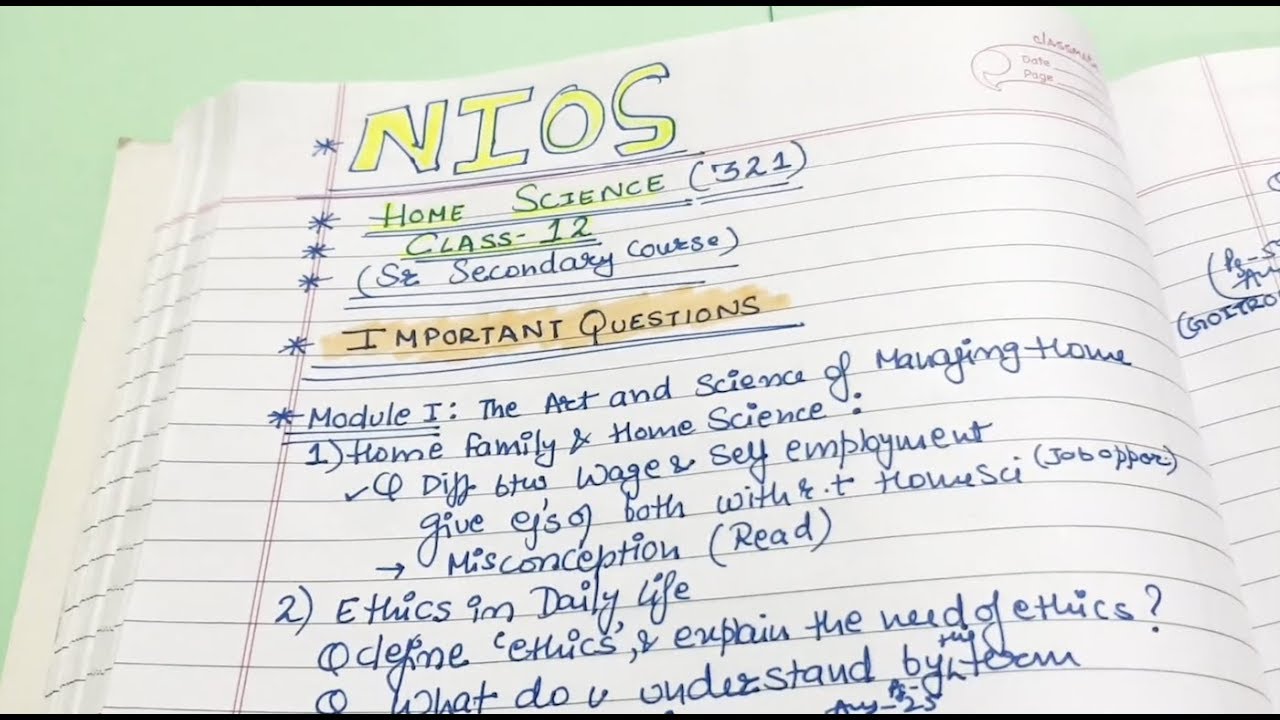 classmate
Date
Page
* NIOS
* HOME SCIENCE (321)
* CLASS-12
* (Sr Secondary Course)
* IMPORTANT QUESTIONS
* Module I: The Art and Science of Managing Home
1) Home family & Home Science:
✓ Q Diff btw Wage & Self employment
give eg's of both with r.t HomeSci (Job oppor.)
→ Misconception (Read)
2) Ethics in Daily life
Q define 'ethics', & explain the need of ethics?
Q What do u understand by the term